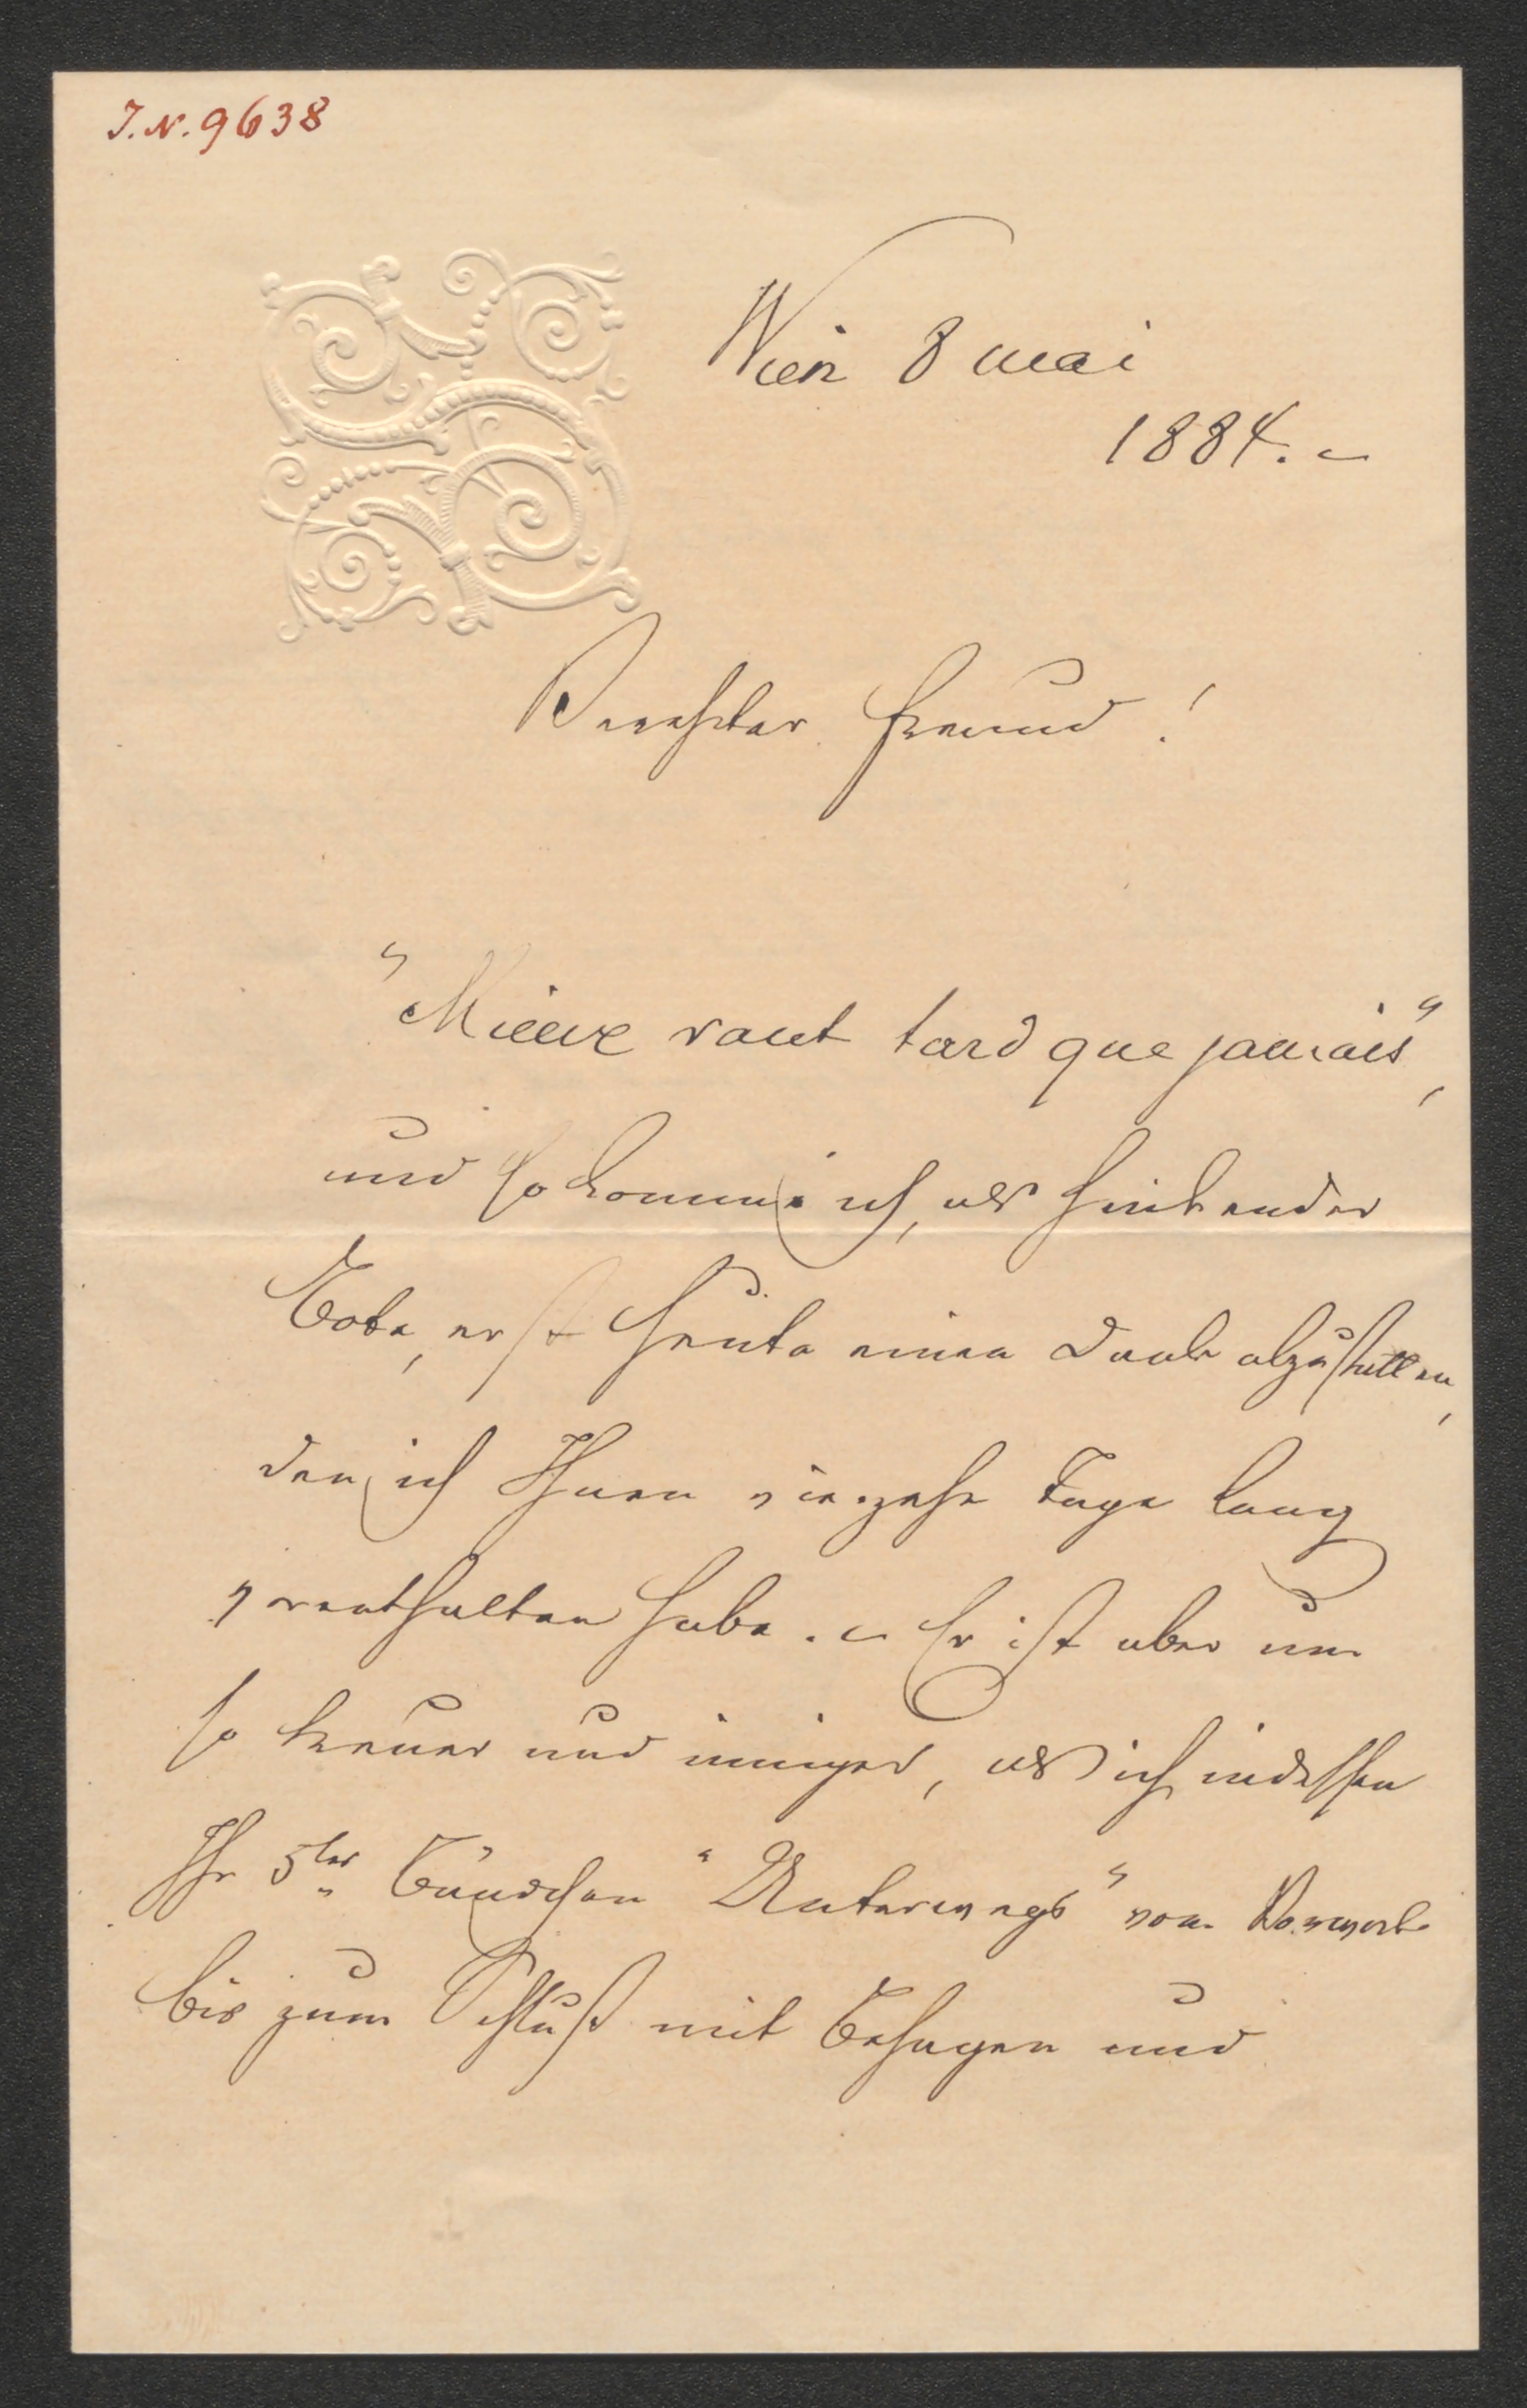 J.N. 9638
Wien 8 Mai
1884. –
Verehrter Freund!
"Mieux vaut tard que jamais",
und so komme ich, als hinkender
Bote, erst heute einen Dank abzustatten,
den ich Ihnen vierzehn Tage lang
vorenthalten habe. – Er ist aber um
so treuer und inniger, als ich indessen
Ihr 5tes Bändchen "Unterwegs" vom Vorwort
bis zum Schluß mit Behagen und